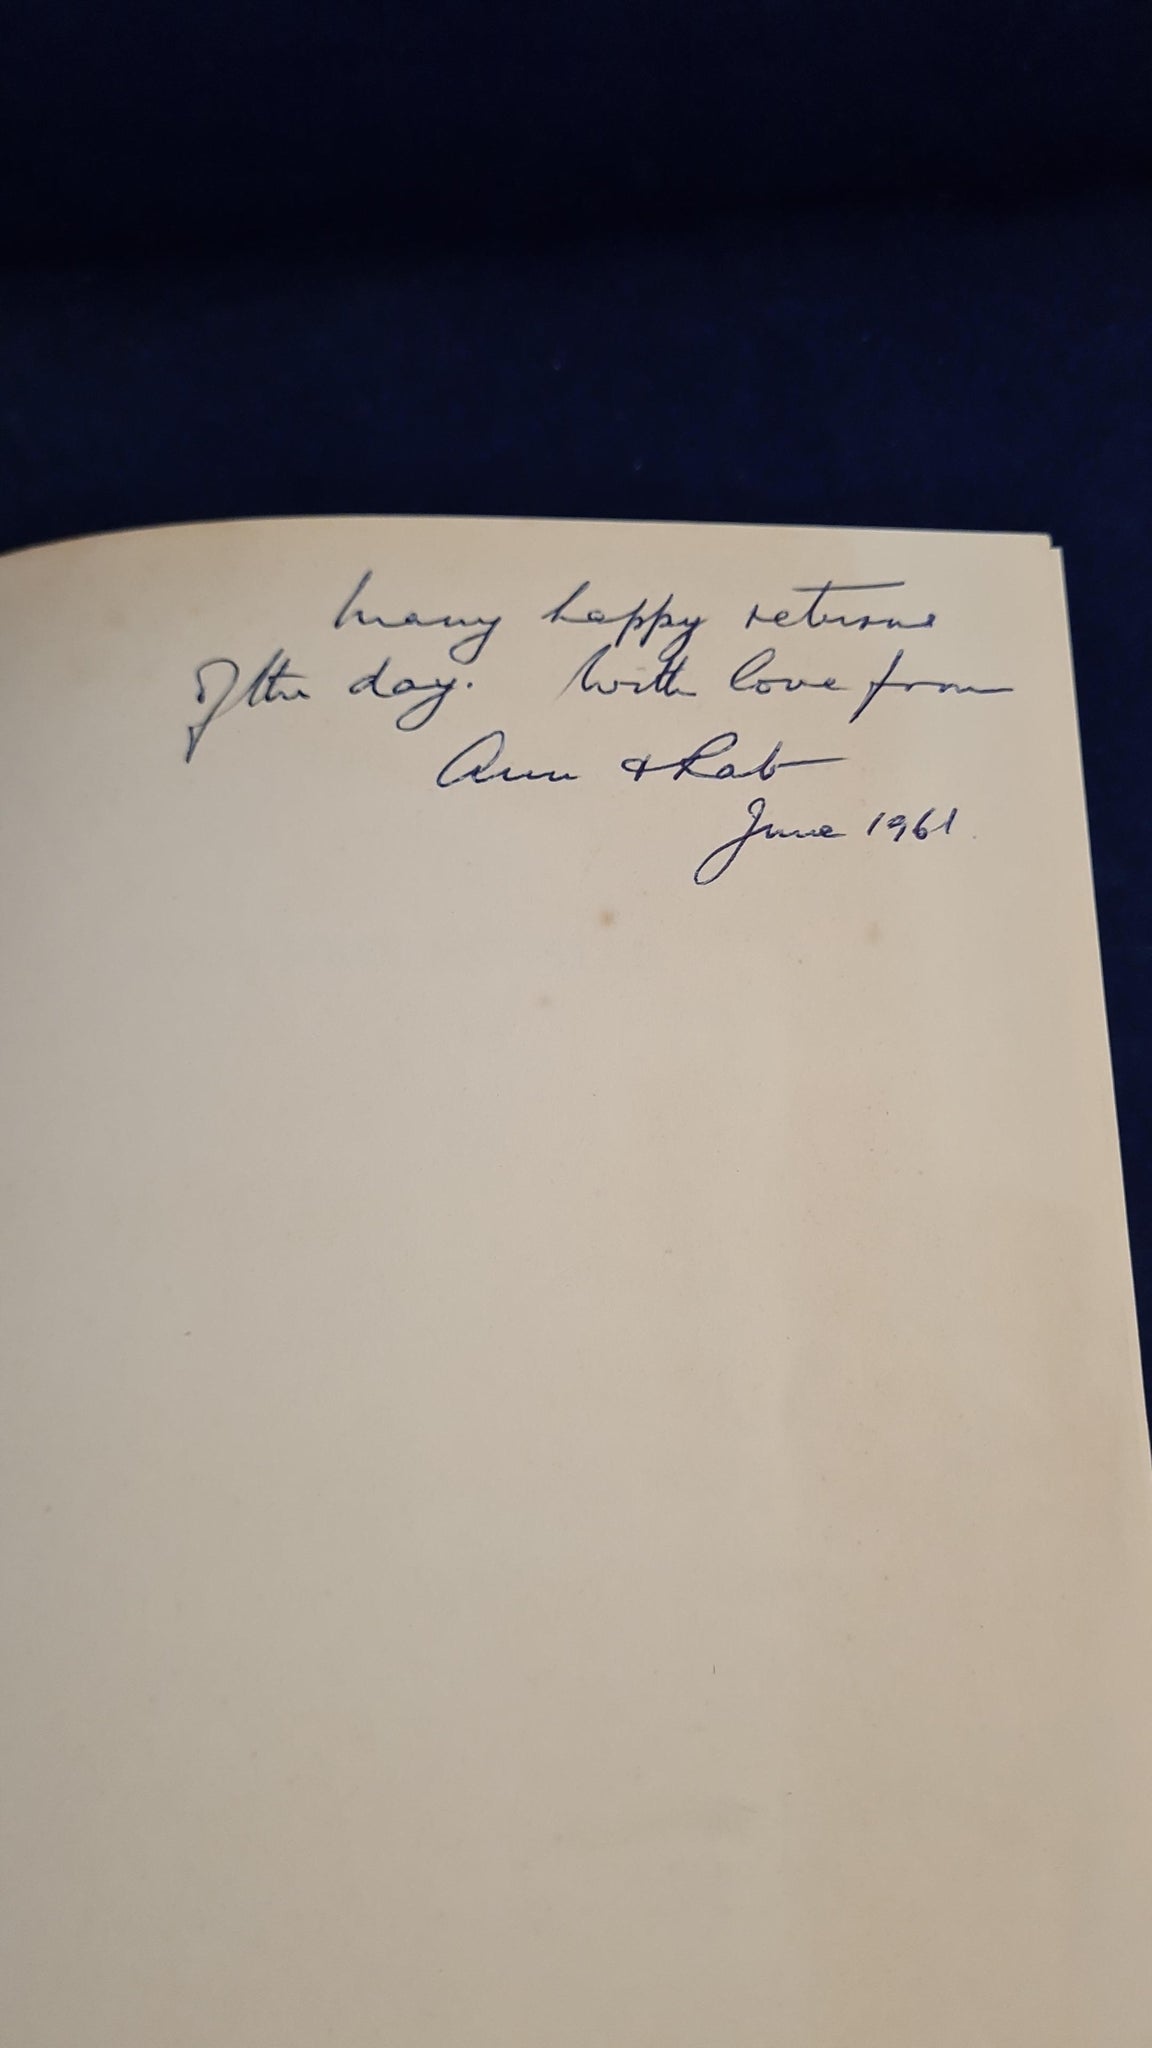 Many happy returns
of the day. With love from
Ann & Rab
June 1961